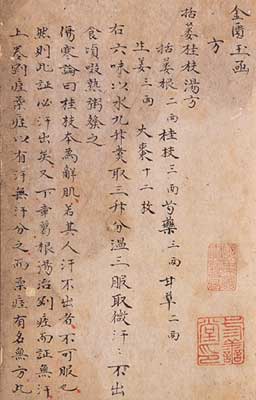 金匱玉函
方
栝蔞桂枝湯方
栝蔞根二兩 桂枝三兩 芍藥三兩 甘草二兩
生姜三兩 大棗十二枚
右六味以水九升煮取三升分溫三服取微汗〻不出
食頃啜熱粥發之
傷寒論曰桂枝本為解肌若其人汗不出者不可服也
然則此証必汗出矣又下章葛根湯治剛痓而証無汗
上卷剛痓柔痓以有汗無汗分之而柔痓有名無方此